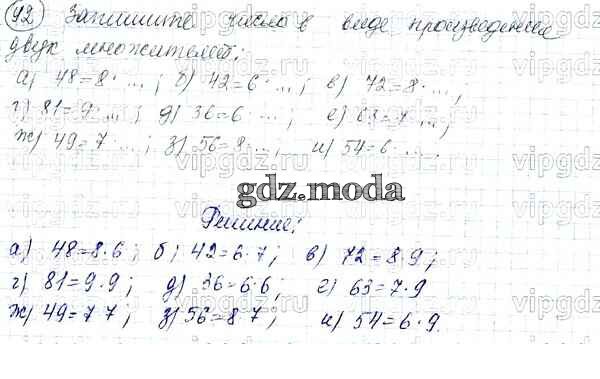 92) Запишите числа в виде произведения
двух множителей:
а) 48=8·...; б) 42=6·...; в) 72=8·...;
г) 81=9·...; д) 36=6·...; е) 63=7·...;
ж) 49=7·...; з) 56=8·...; и) 54=6·...
gdz.moda
Решение:
а) 48=8·6; б) 42=6·7; в) 72=8·9;
г) 81=9·9; д) 36=6·6; е) 63=7·9
ж) 49=7 7; з) 56=8 7; и) 54=6·9.